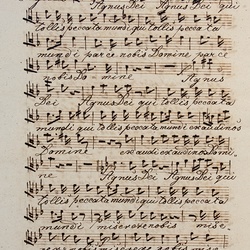 Agnus Dei Agnus Dei qui
tollis peccata mundi qui tollis peccata
mundi parce nobis Domine parce
nobis Do - mine Agnus
Dei Agnus Dei qui tollis peccata
mundi qui tollis peccata mundi exaudi nos
Domine exaudi exaudi nos Domi,
ne Agnus Dei Agnus Dei qui
tollis peccata mundi qui tollis peccata
mundi miserere nobis mise,